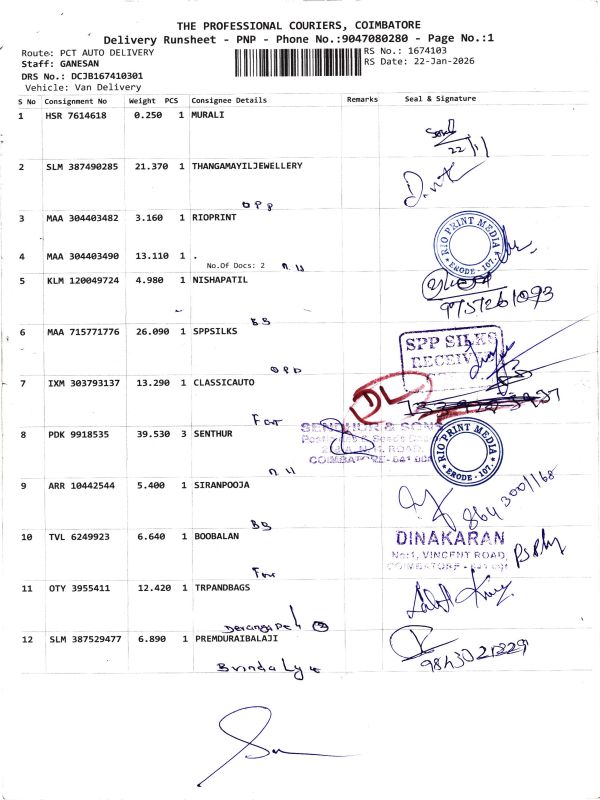 THE PROFESSIONAL COURIERS, COIMBATORE
Delivery Runsheet - PNP - Phone No.:9047080280 - Page No.:1
Route: PCT AUTO DELIVERY
RS No.: 1674103
Staff: GANESAN
RS Date: 22-Jan-2026
DRS No.: DCJB167410301
Vehicle: Van Delivery
S No Consignment No Weight PCS Consignee Details Remarks Seal & Signature
1 HSR 7614618 0.250 1 MURALI
22/1
2 SLM 387490285 21.370 1 THANGAMAYILJEWELLERY
3 MAA 304403482 3.160 1 RIOPRINT
RIO PRINT MEDIA
ERODE - 107.
4 MAA 304403490 13.110 1 .
No.Of Docs: 2
5 KLM 120049724 4.980 1 NISHAPATIL
BS
6 MAA 715771776 26.090 1 SPPSILKS
SPP SILKS
RECEIVED
7 IXM 303793137 13.290 1 CLASSICAUTO
DL
For
8 PDK 9918535 39.530 3 SENTHUR
SENTHUR & SONS
COIMBATORE - 641 001
RIO PRINT MEDIA
ERODE - 107.
9 ARR 10442544 5.400 1 SIRANPOOJA
8643001168
BS
10 TVL 6249923 6.640 1 BOOBALAN
DINAKARAN
No:1, VINCENT ROAD,
COIMBATORE - 641 001
For
11 OTY 3955411 12.420 1 TRPANDBAGS
12 SLM 387529477 6.890 1 PREMDURAIBALAJI
9843021229